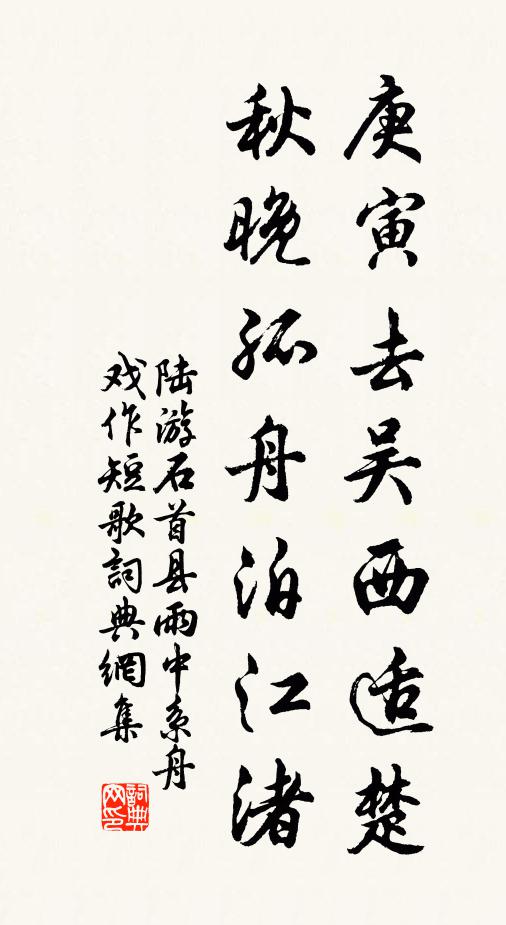 庚寅去吴西适楚
秋晚孤舟泊江渚
陆游石首县雨中系舟
戏作短歌詞典網集
詞典
网印